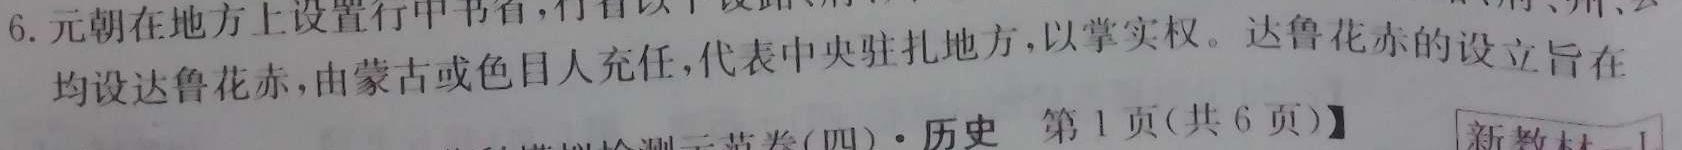 6. 元朝在地方上设置行中书省,行省以下设路、府、州、县
均设达鲁花赤,由蒙古或色目人充任,代表中央驻扎地方,以掌实权。达鲁花赤的设立旨在
模拟检测示范卷(四)·历史 第1页(共6页)】
新教材—L